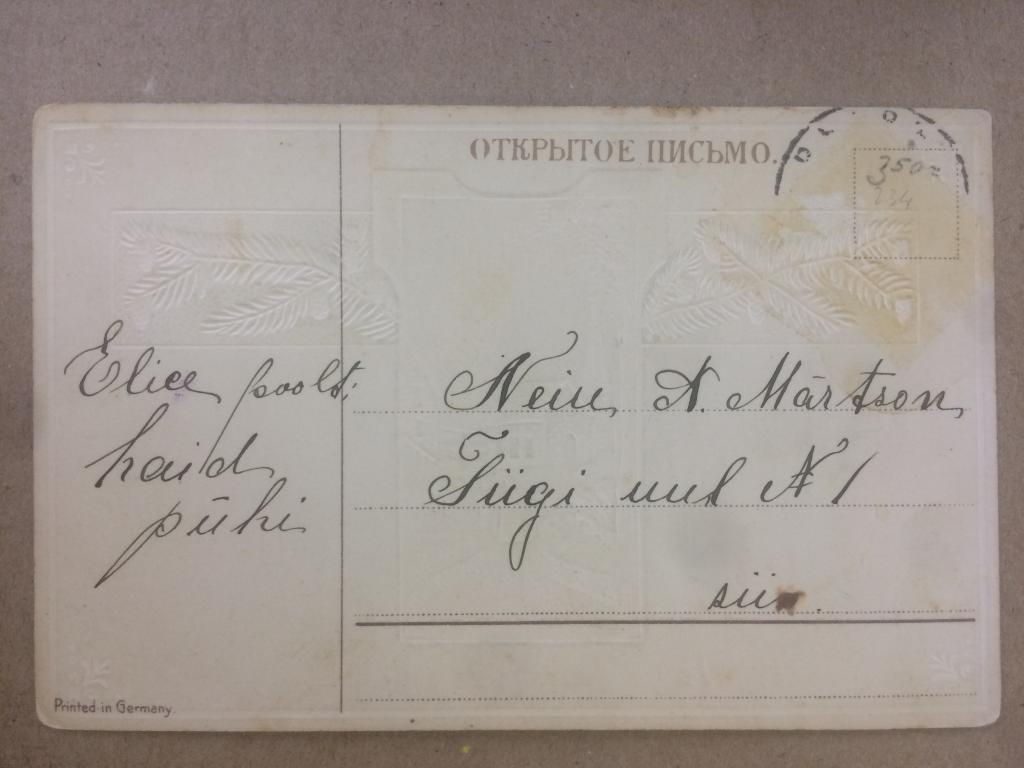 ОТКРЫТОЕ ПИСЬМО.
350=
Elice poolt:
haid
pühi
Neiu A. Märtson
Tiigi uul № 1
siin.
Printed in Germany.